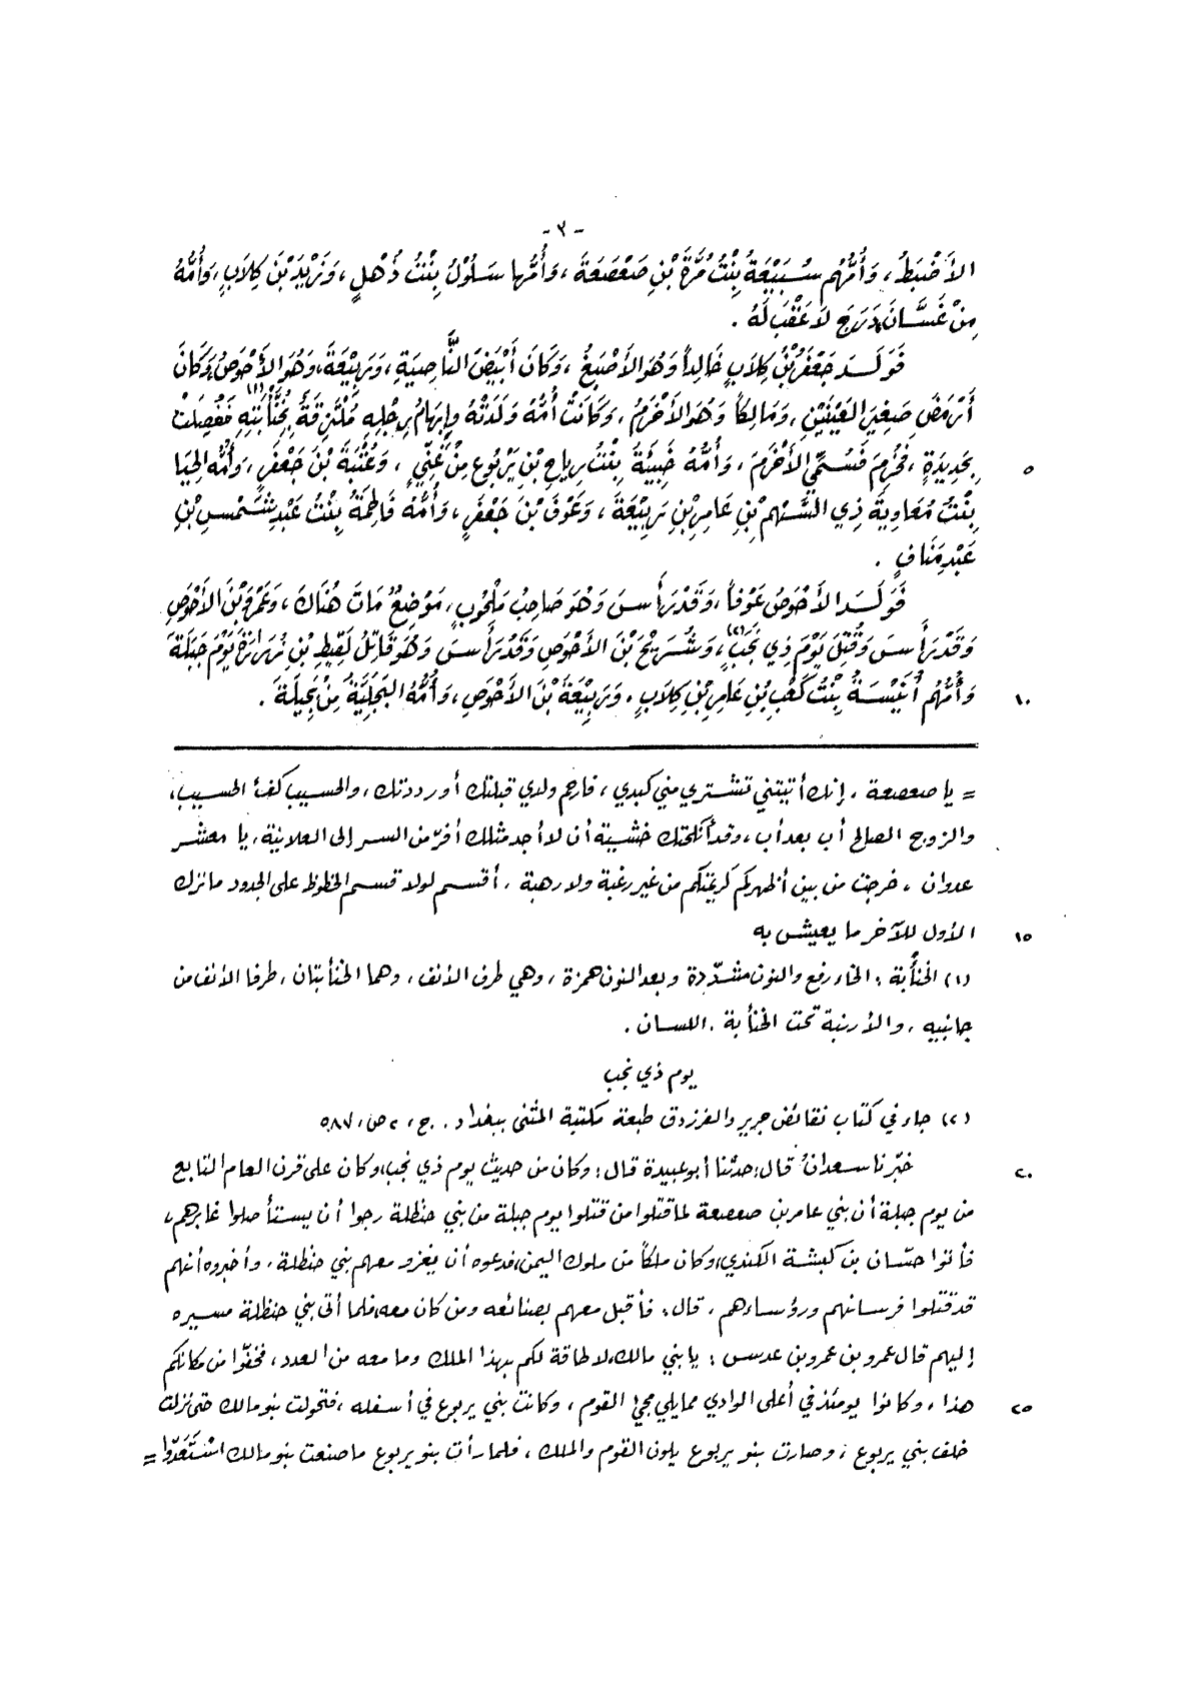 - ٣ -
الأَضْبَطُ، وَأُمُّهُم سُبَيْعَةُ بِنْتُ مُرَّةَ بْنِ صَعْصَعَةَ، وَأُمُّها سَلُولُ بِنْتُ ذُهْلٍ، وَزَيْدَ بْنَ كِلَابٍ، وَأُمُّهُ
مِنْ غَسَّانَ دَرَجَ لَا عَقْبَ لَهُ.
فَوَلَدَ جَعْفَرُ بْنُ كِلَابٍ خَالِداً وَهُوَ الأَصْبَغُ، وَكَانَ أَبْيَضَ النَّاصِيَةِ، وَرَبِيْعَةَ، وَهُوَ الأَحْوَصُ، وَكَانَ
أَرْمَصَ صَغِيرَ العَيْنَيْنِ، وَمَالِكاً وَهُوَ الأَخْرَمُ، وَكَانَتْ أُمُّهُ وَلَدَتْهُ وإِبْهَامُ رِجْلِهِ مُلْتَزِقَةٌ بِخُنَّأْبَتِهِ (١) فَفُصِلَتْ
بِحَدِيدَةٍ، فَخُرِمَ فَسُمِّيَ الأَخْرَمَ، وَأُمُّهُ خَبِيَّةُ بِنْتُ رِياحِ بْنِ يَرْبُوعٍ مِنْ غَنِيٍّ، وَعُتْبَةَ بْنَ جَعْفَرٍ، وَأُمُّهُ الحَيَا ٥
بِنْتُ مُعَاوِيَةَ ذِي السَّهْمِ بْنِ عَامِرِ بْنِ رَبِيْعَةَ، وَعَوْفَ بْنَ جَعْفَرٍ، وَأُمُّهُ فَاطِمَةُ بِنْتُ عَبْدِ شَمْسِ بْنِ
عَبْدِ مَنَافٍ.
فَوَلَدَ الأَحْوَصُ عَوْفاً، وَقَدْ رَأَسَ وَهُوَ صَاحِبُ مَلْحُوبٍ، مَوْضِعٌ مَاتَ هُنَاكَ، وَعَمْرَو بْنَ الأَحْوَصِ
وَقَدْ رَأَسَ وَقُتِلَ يَوْمَ ذِي نَجَبٍ (٢)، وَشُرَيْحَ بْنَ الأَحْوَصِ وَقَدْ رَأَسَ وَهُوَ قَاتِلُ لَقِيطِ بْنِ زُرَارَةَ يَوْمَ جَبَلَةَ
وَأُمُّهُم أُنَيْسَةُ بِنْتُ كَعْبِ بْنِ عَامِرِ بْنِ كِلَابٍ، وَرَبِيْعَةَ بْنَ الأَحْوَصِ، وَأُمُّهُ البَجَلِيَّةُ مِنْ بَجِيلَةَ. ١٠
= يا صعصعة، إنك أتيتني تشتري مني كبدي، فارحم ولدي قبلتك أو رددتك، والحسيب كفء الحسيب،
والزوج الصالح أب بعد أب، وقد أنكحتك خشية أن لا أجد مثلك أفرّ من السر إلى العلانية، يا معشر
عدوان، خرجت من بين أظهركم كريمتكم من غير رغبة ولا رهبة، أقسم لولا قسم الحظوظ على الجدود ما ترك
الأول للآخر ما يعيش به ١٥
(١) الخنأبة: الخاء رفع والنون مشدّدة وبعد النون همزة، وهي طرف الأنف، وهما الخنأبتان، طرفا الأنف من
جانبيه، والأرنبة تحت الخنأبة. اللسان.
يوم ذي نجب
(٢) جاء في كتاب نقائض جرير والفرزدق طبعة مكتبة المثنى ببغداد. ج: ٢ ص: ٥٨٧
خبّرنا سعدانُ قال: حدثنا أبو عبيدة قال: وكان من حديث يوم ذي نجب، وكان على قرن العام التابع ٢٠
من يوم جبلة أن بني عامر بن صعصعة لما قتلوا من قتلوا يوم جبلة من بني حنظلة رجوا أن يستأصلوا غابرهم،
فأتوا حسّان بن كبشة الكندي، وكان ملكاً من ملوك اليمن، فدعوه أن يغزو معهم بني حنظلة، وأخبروه أنهم
قد قتلوا فرسانهم ورؤساءهم، قال: فأقبل معهم بصنائعه ومن كان معه، فلما أتى بني حنظلة مسيره
إليهم قال عمرو بن عمرو بن عدس: يا بني مالك، لا طاقة لكم بهذا الملك وما معه من العدد، فخفّوا من مكانكم
هذا، وكانوا يومئذ في أعلى الوادي مما يلي مجيء القوم، وكانت بني يربوع في أسفله، فتحولت بنو مالك حتى نزلت ٢٥
خلف بني يربوع، وصارت بنو يربوع يلون القوم والملك، فلما رأت بنو يربوع ما صنعت بنو مالك اسْتَعَدّوا =